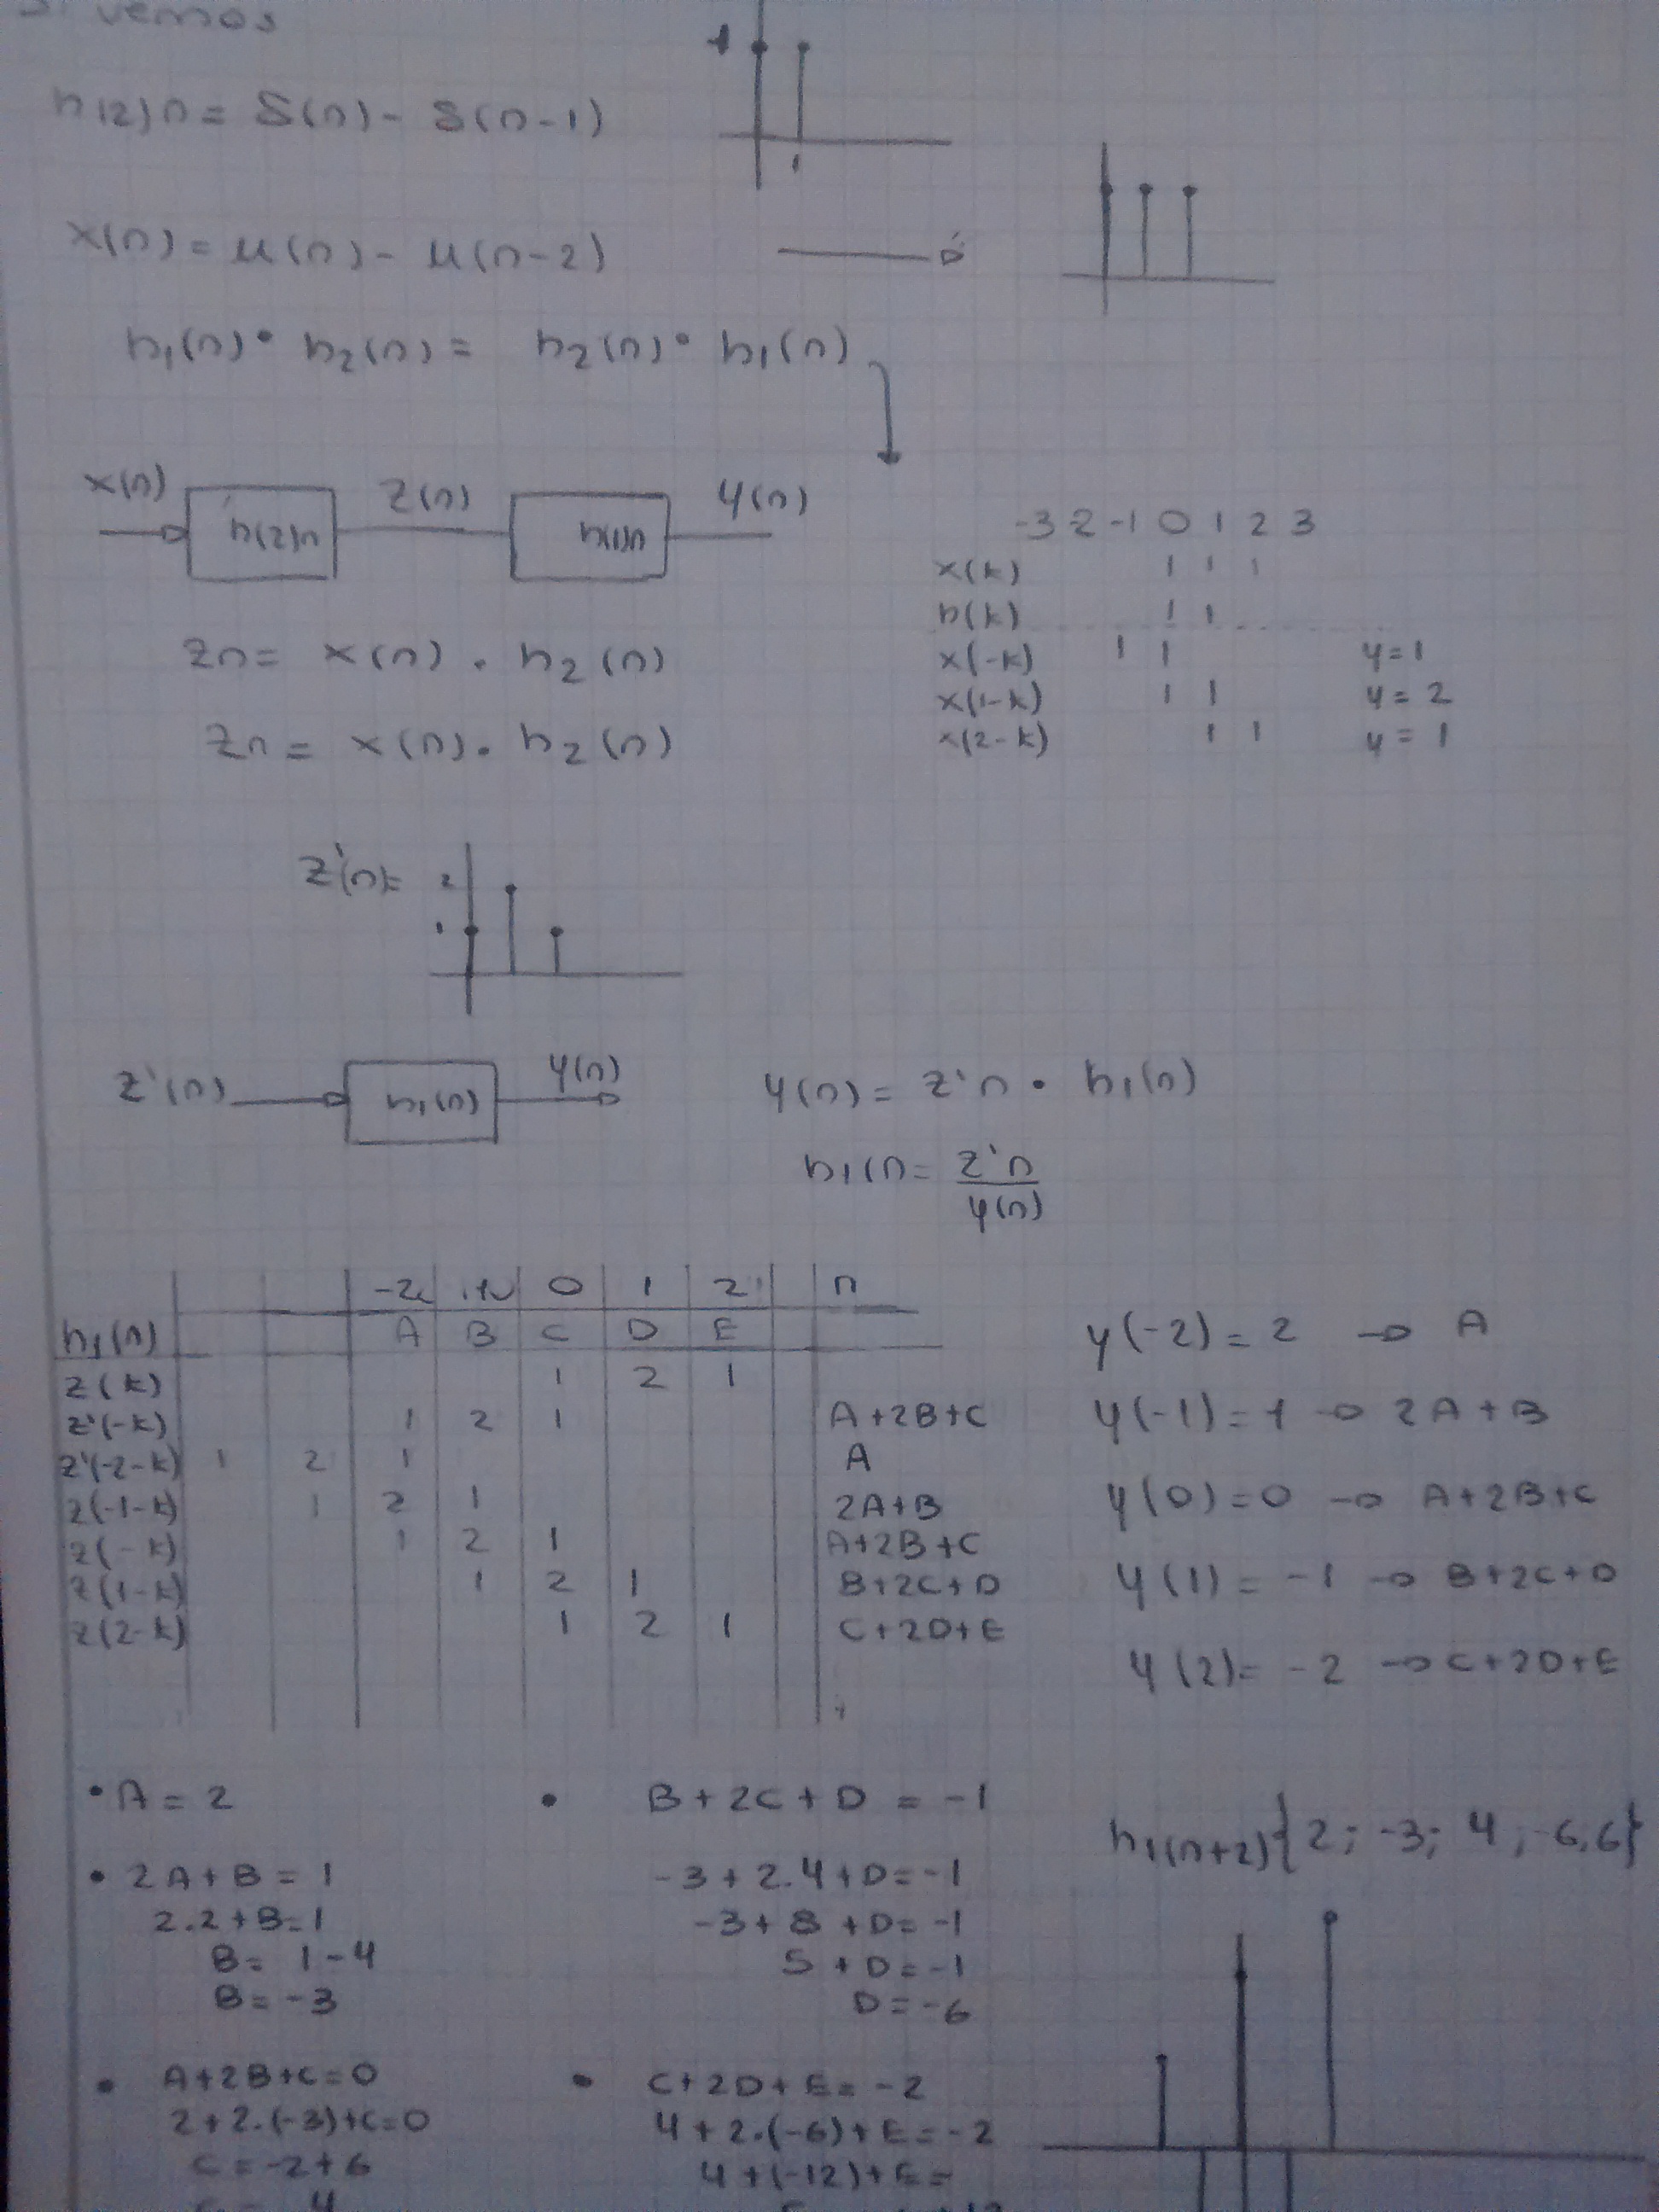 vemos
1
h(2)n = δ(n) - δ(n-1)
1
x(n) = μ(n) - μ(n-2)
h₁(n) • h₂(n) = h₂(n) • h₁(n)
x(n) h(2)n z(n) h(1)n y(n)
-3 -2 -1 0 1 2 3
x(k) 1 1 1
h(k) 1 1
x(-k) 1 1 y=1
x(1-k) 1 1 y=2
x(2-k) 1 1 y=1
zn = x(n) . h₂(n)
zn = x(n) . h₂(n)
z'(n)= 2
1
z'(n) h₁(n) y(n)
y(n) = z'n • h₁(n)
h₁(n = z'n / y(n)
-2 0 1 2 n
h₁(n) A B C D E
z(k) 1 2 1
z'(-k) 1 2 1 A+2B+C
z'(-2-k) 1 2 1 A
z(-1-k) 1 2 1 2A+B
z(-k) 1 2 1 A+2B+C
z(1-k) 1 2 1 B+2C+D
z(2-k) 1 2 1 C+2D+E
y(-2) = 2 → A
y(-1) = 1 → 2A+B
y(0) = 0 → A+2B+C
y(1) = -1 → B+2C+D
y(2) = -2 → C+2D+E
• A = 2
• 2A+B = 1
2.2+B=1
B= 1-4
B= -3
• A+2B+C=0
2+2.(-3)+C=0
C = -2+6
C = 4
• B+2C+D = -1
-3+2.4+D=-1
-3+8+D=-1
5+D=-1
D=-6
• C+2D+E=-2
4+2.(-6)+E=-2
4+(-12)+E=
h₁(n+2){2; -3; 4; -6,6}